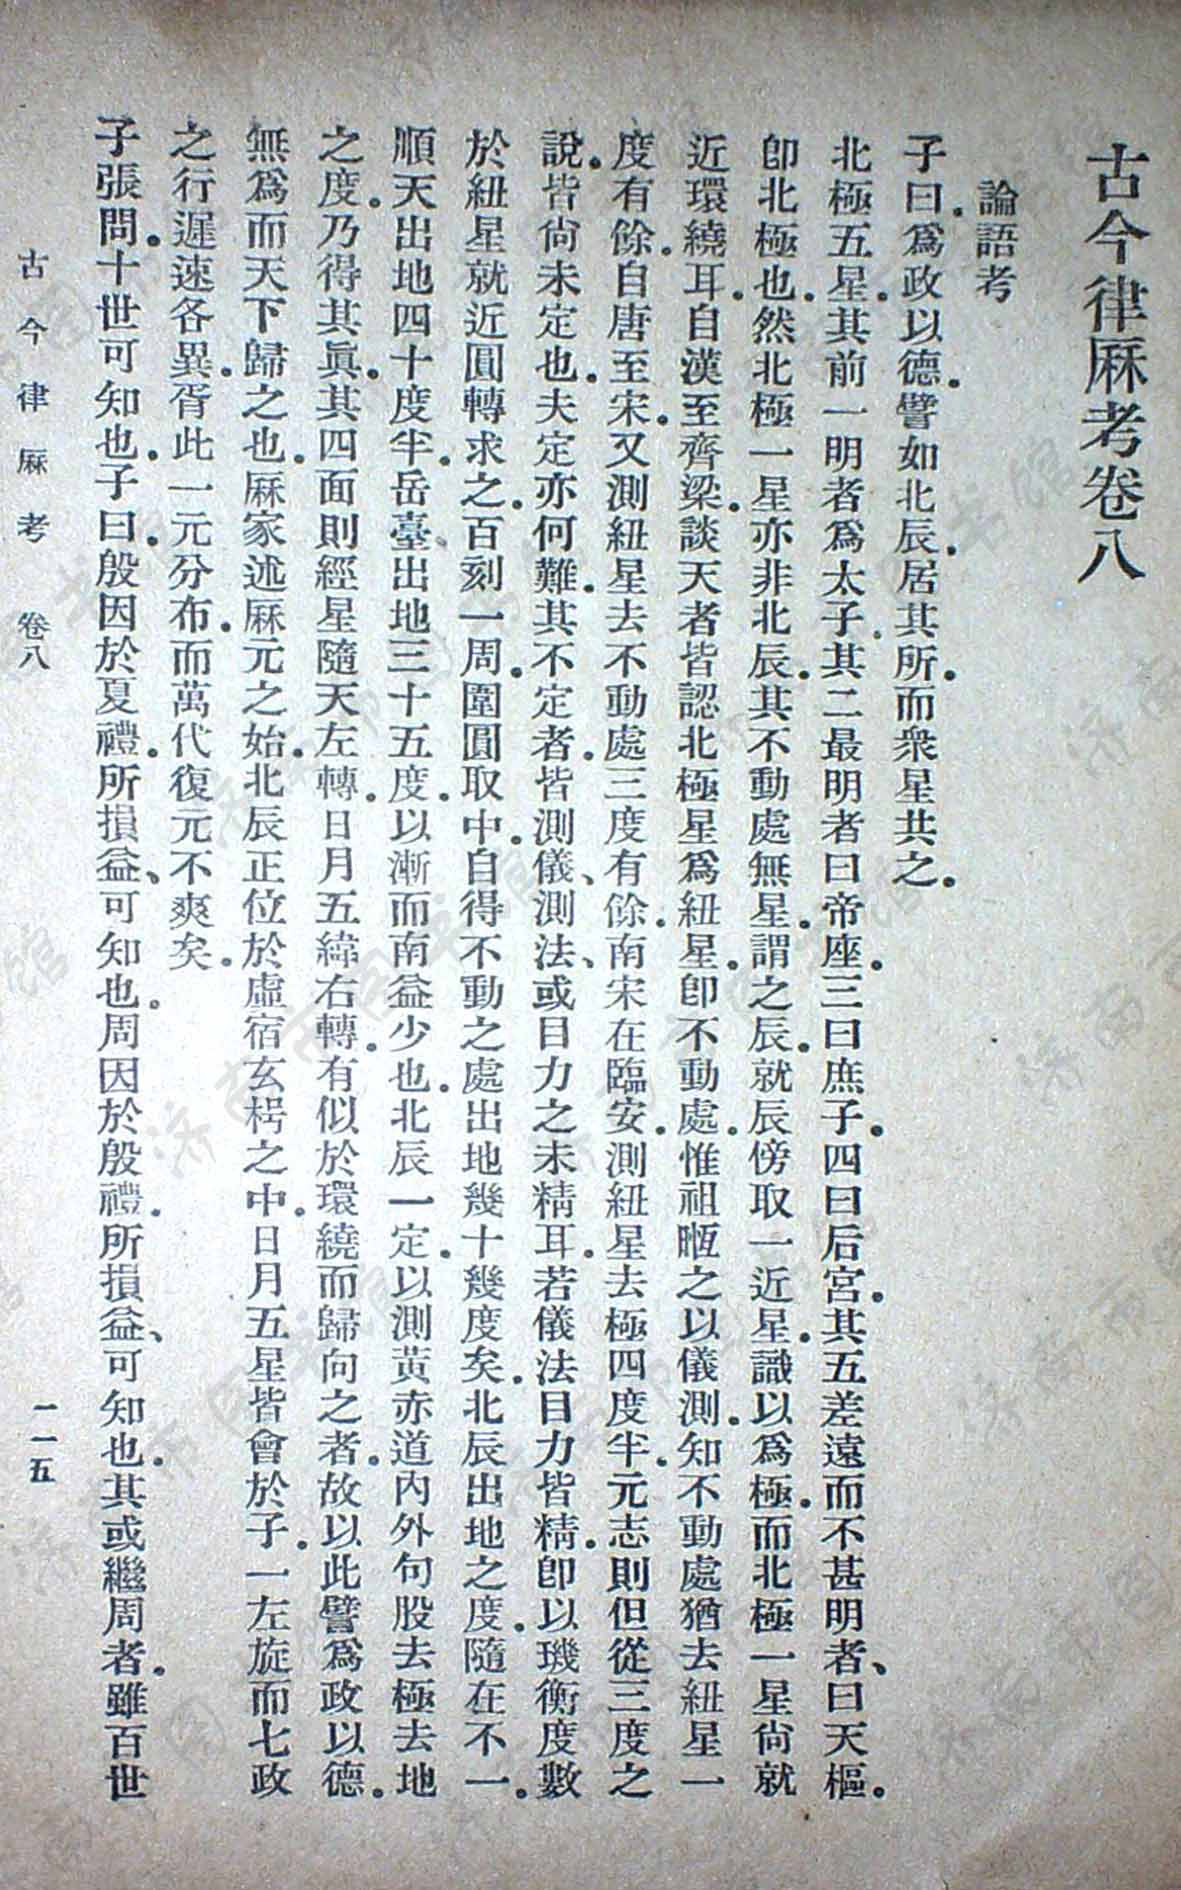 古今律厤考卷八
論語考
子曰。爲政以德。譬如北辰。居其所。而衆星共之。
北極五星。其前一明者爲太子。其二最明者曰帝座。三曰庶子。四曰后宮。其五差遠而不甚明者、曰天樞。
卽北極也。然北極一星亦非北辰。其不動處無星。謂之辰。就辰傍取一近星。識以爲極。而北極一星尙就
近環繞耳。自漢至齊梁。談天者皆認北極星爲紐星。卽不動處。惟祖暅之以儀測。知不動處猶去紐星一
度有餘。自唐至宋。又測紐星去不動處三度有餘。南宋在臨安。測紐星去極四度半。元志則但從三度之
說。皆尙未定也。夫定亦何難。其不定者。皆測儀、測法、或目力之未精耳。若儀法目力皆精。卽以璣衡度數
於紐星就近圓轉求之。百刻一周。圍圓取中。自得不動之處出地幾十幾度矣。北辰出地之度。隨在不一。
順天出地四十度半。岳臺出地三十五度。以漸而南益少也。北辰一定。以測黃赤道內外句股去極去地
之度。乃得其眞。其四面則經星隨天左轉。日月五緯右轉。有似於環繞而歸向之者。故以此譬爲政以德。
無爲而天下歸之也。厤家述厤元之始。北辰正位於虛宿玄枵之中。日月五星皆會於子。一左旋而七政
之行遲速各異。胥此一元分布。而萬代復元不爽矣。
子張問。十世可知也。子曰。殷因於夏禮。所損益、可知也。周因於殷禮。所損益、可知也。其或繼周者。雖百世
古今律厤考 卷八 一一五